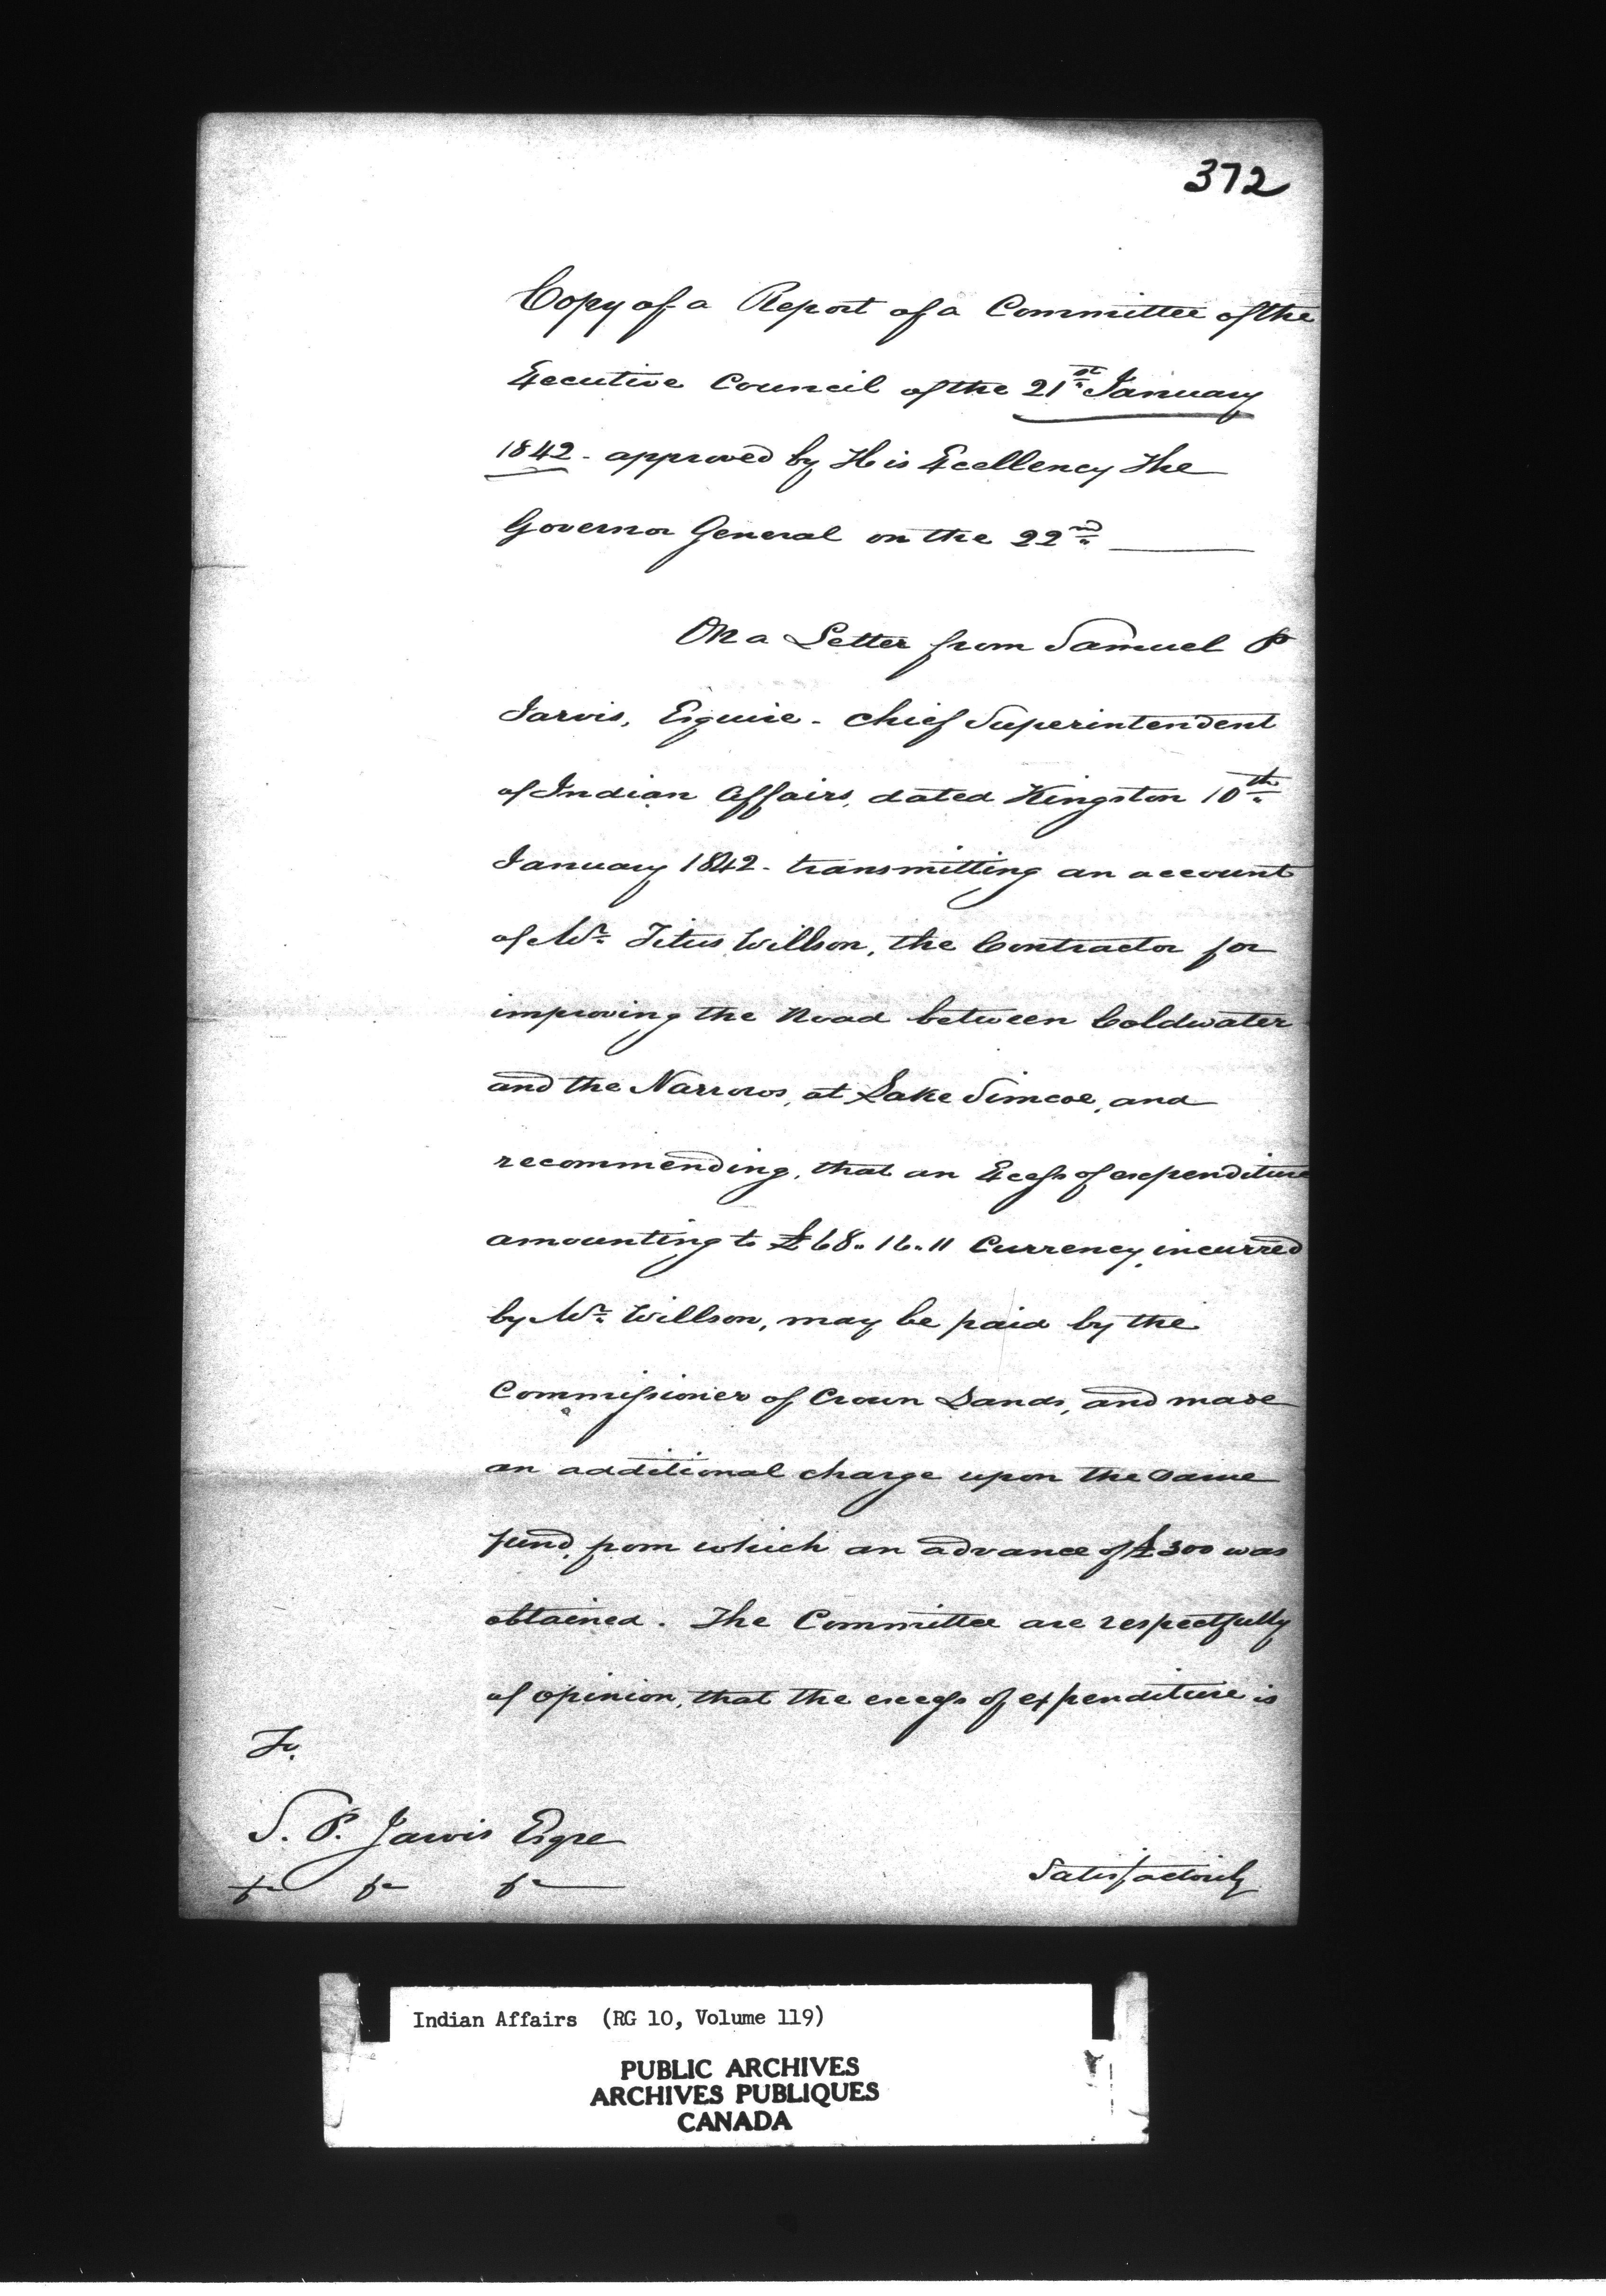 372
Copy of a Report of a Committee of the
Executive Council of the 21st January
1842 - approved by His Excellency The
Governor General on the 22nd
On a Letter from Samuel P
Jarvis, Esquire - Chief Superintendent
of Indian Affairs, dated Kingston 10th
January 1842 - transmitting an account
of Mr. Titus Willson, the Contractor for
improving the Road between Coldwater
and the Narrows, at Lake Simcoe, and
recommending, that an Excess of expenditure
amounting to £68.. 16.. 11 Currency, incurred
by Mr. Willson, may be paid by the
Commissioner of Crown Lands, and made
an additional charge upon the same
fund, from which an advance of £300 was
obtained. The Committee are respectfully
of opinion, that the excess of expenditure is
To.
S. P. Jarvis Esqre
&c &c &c
Satisfactorily
Indian Affairs (RG 10, Volume 119)
PUBLIC ARCHIVES
ARCHIVES PUBLIQUES
CANADA